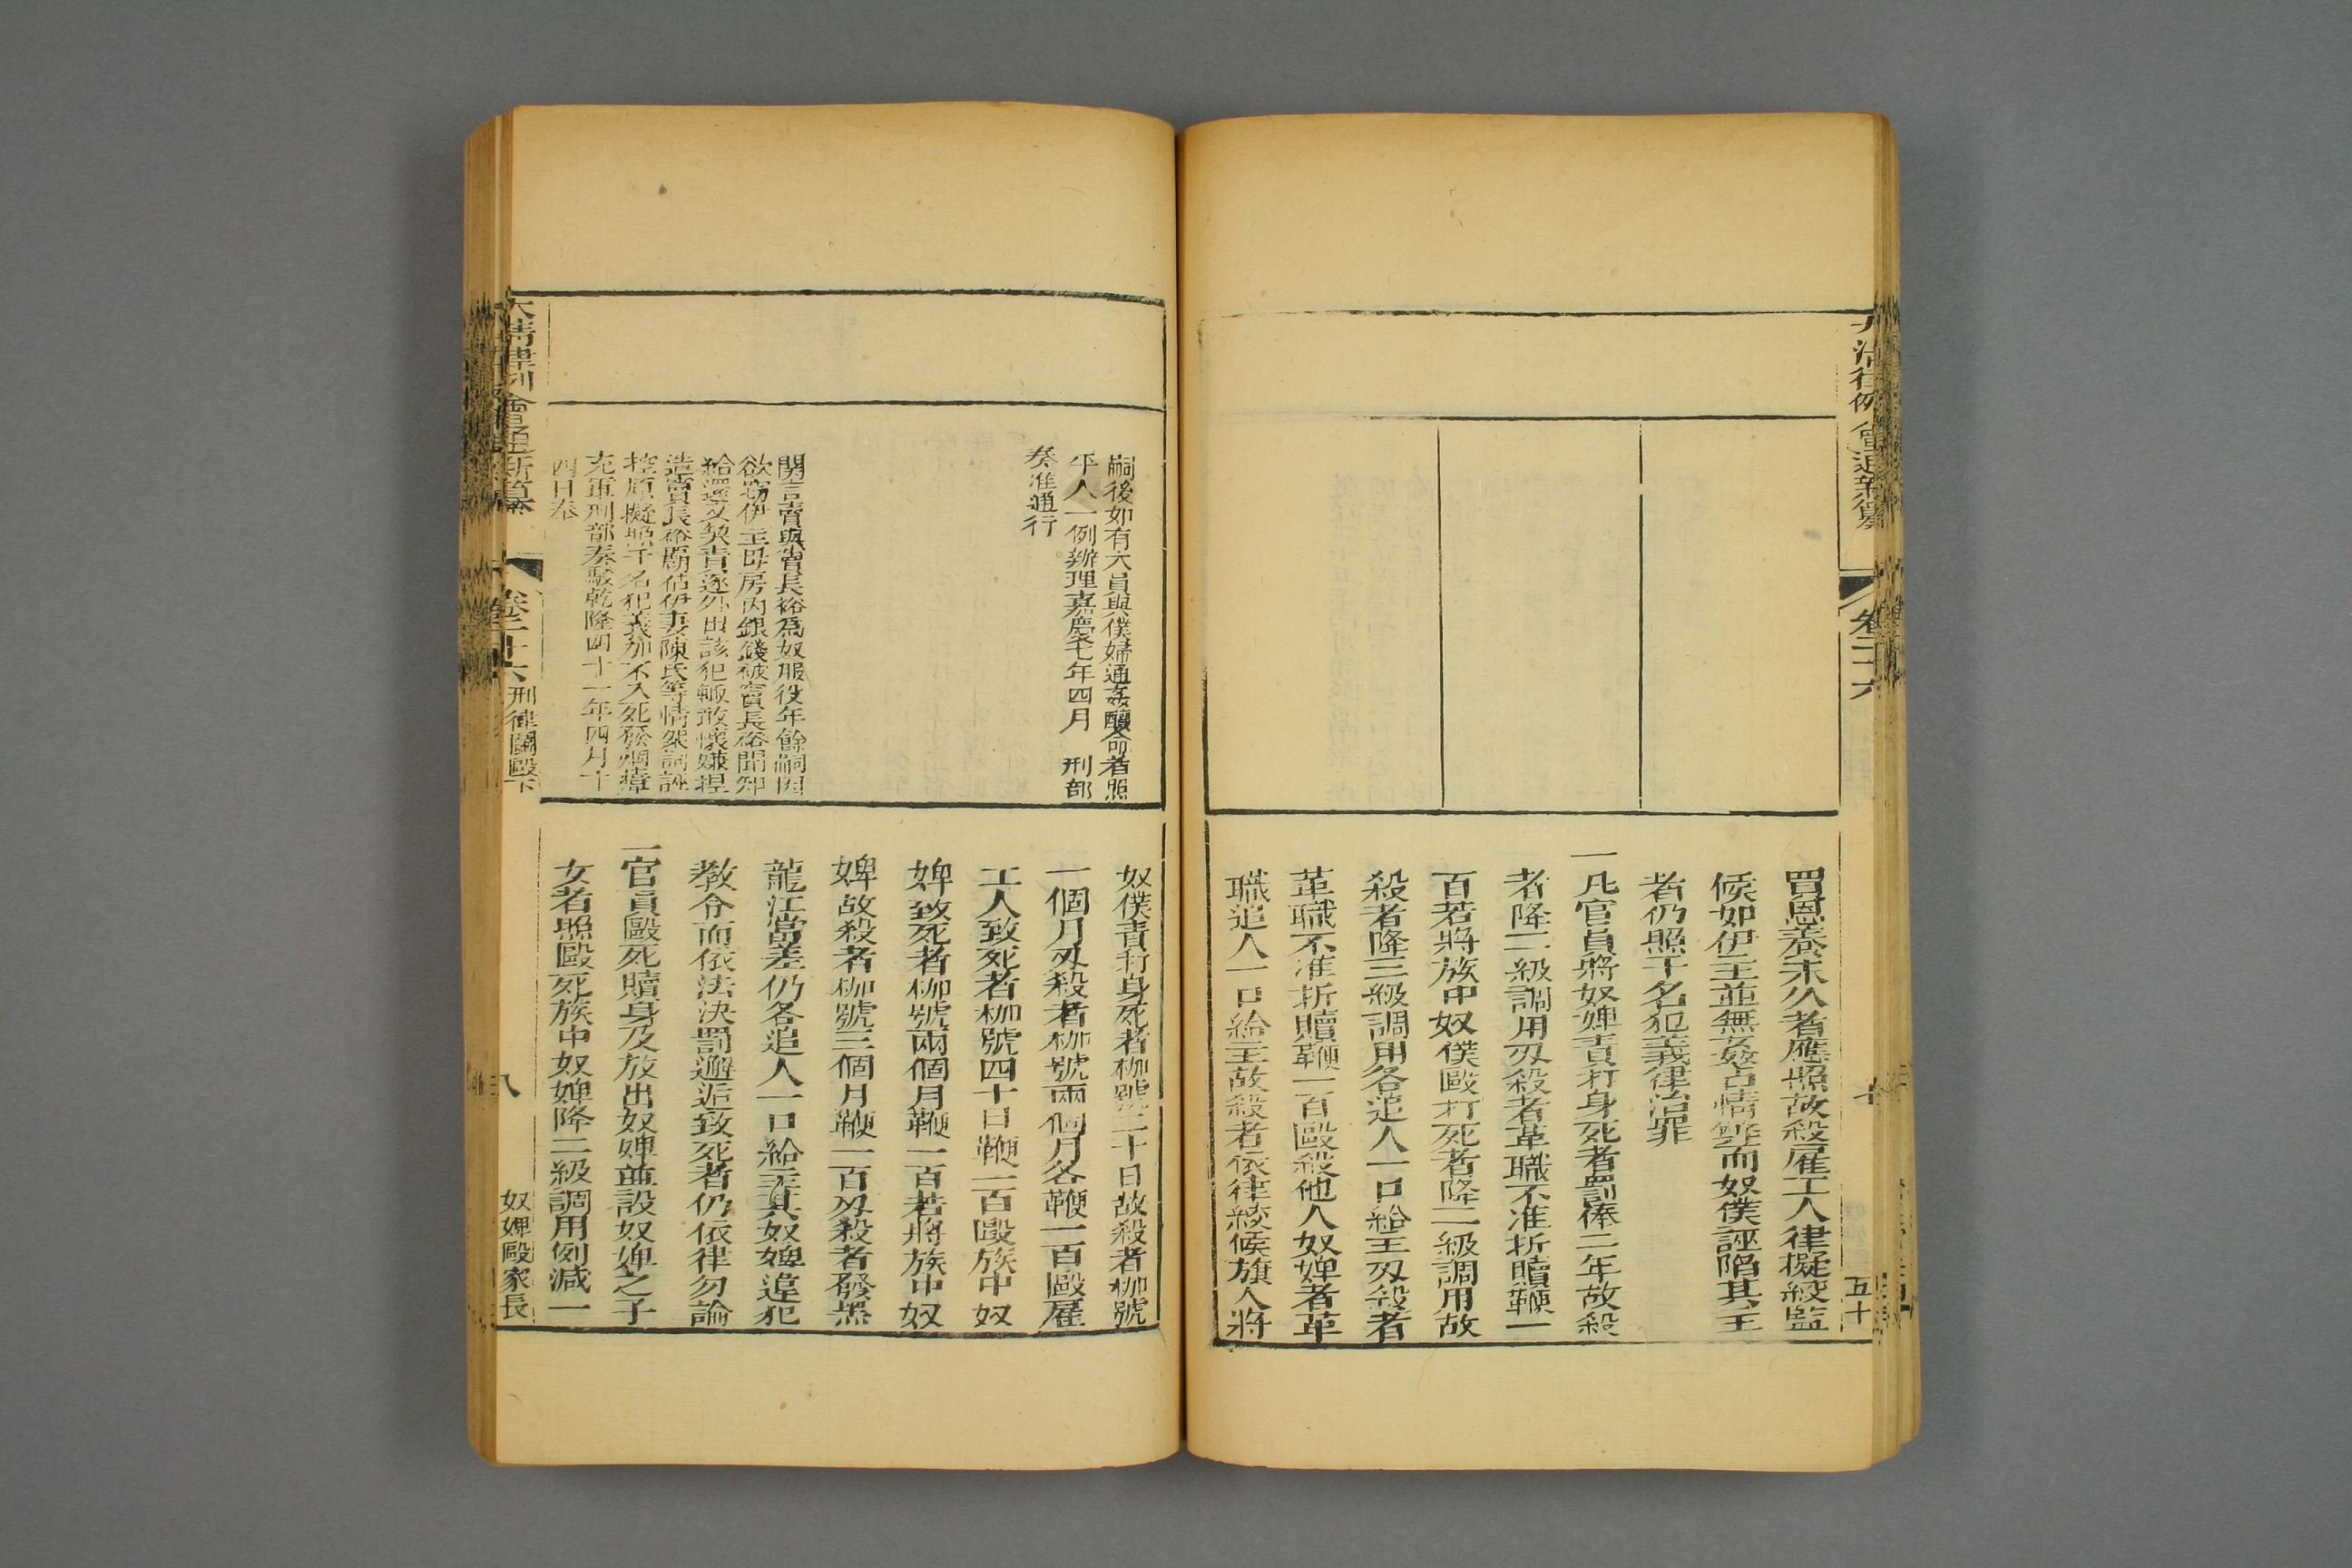 卷二十六
五十
買恩養未久者應照故殺雇工人律擬絞監
候如伊主並無姦占情弊而奴僕誣陷其主
者仍照干名犯義律治罪
一凡官員將奴婢責打身死者罰俸二年故殺
者降二級調用刃殺者革職不准折贖鞭一
百若將族中奴僕毆打死者降二級調用故
殺者降三級調用各追人一口給主刃殺者
革職不准折贖鞭一百毆殺他人奴婢者革
職追人一口給主故殺者依律絞候旗人將
嗣後如有大員與僕婦通姦釀命者照
平人一例辦理嘉慶七年四月 刑部
奏准通行
閔言賣與竇長裕為奴服役年餘嗣因
欲竊伊主母房內銀錢被竇長裕聞知
給還文契責逐外出該犯輒敢懷嫌捏
造竇長裕霸佔伊妻陳氏等情架詞誣
控原擬照干名犯義加不入死發烟瘴
充軍刑部奏駁乾隆四十一年四月十
四日奉
奴僕責打身死者枷號二十日故殺者枷號
一個月刃殺者枷號兩個月各鞭一百毆雇
工人致死者枷號四十日鞭一百毆族中奴
婢致死者枷號兩個月鞭一百若將族中奴
婢故殺者枷號三個月鞭一百刃殺者發黑
龍江當差仍各追人一口給主其奴婢違犯
教令而依法決罰邂逅致死者仍依律勿論
一官員毆死贖身及放出奴婢並設奴婢之子
女者照毆死族中奴婢降二級調用例減一
大清律例會通新纂
卷二十六
刑律鬬毆下
八
奴婢毆家長